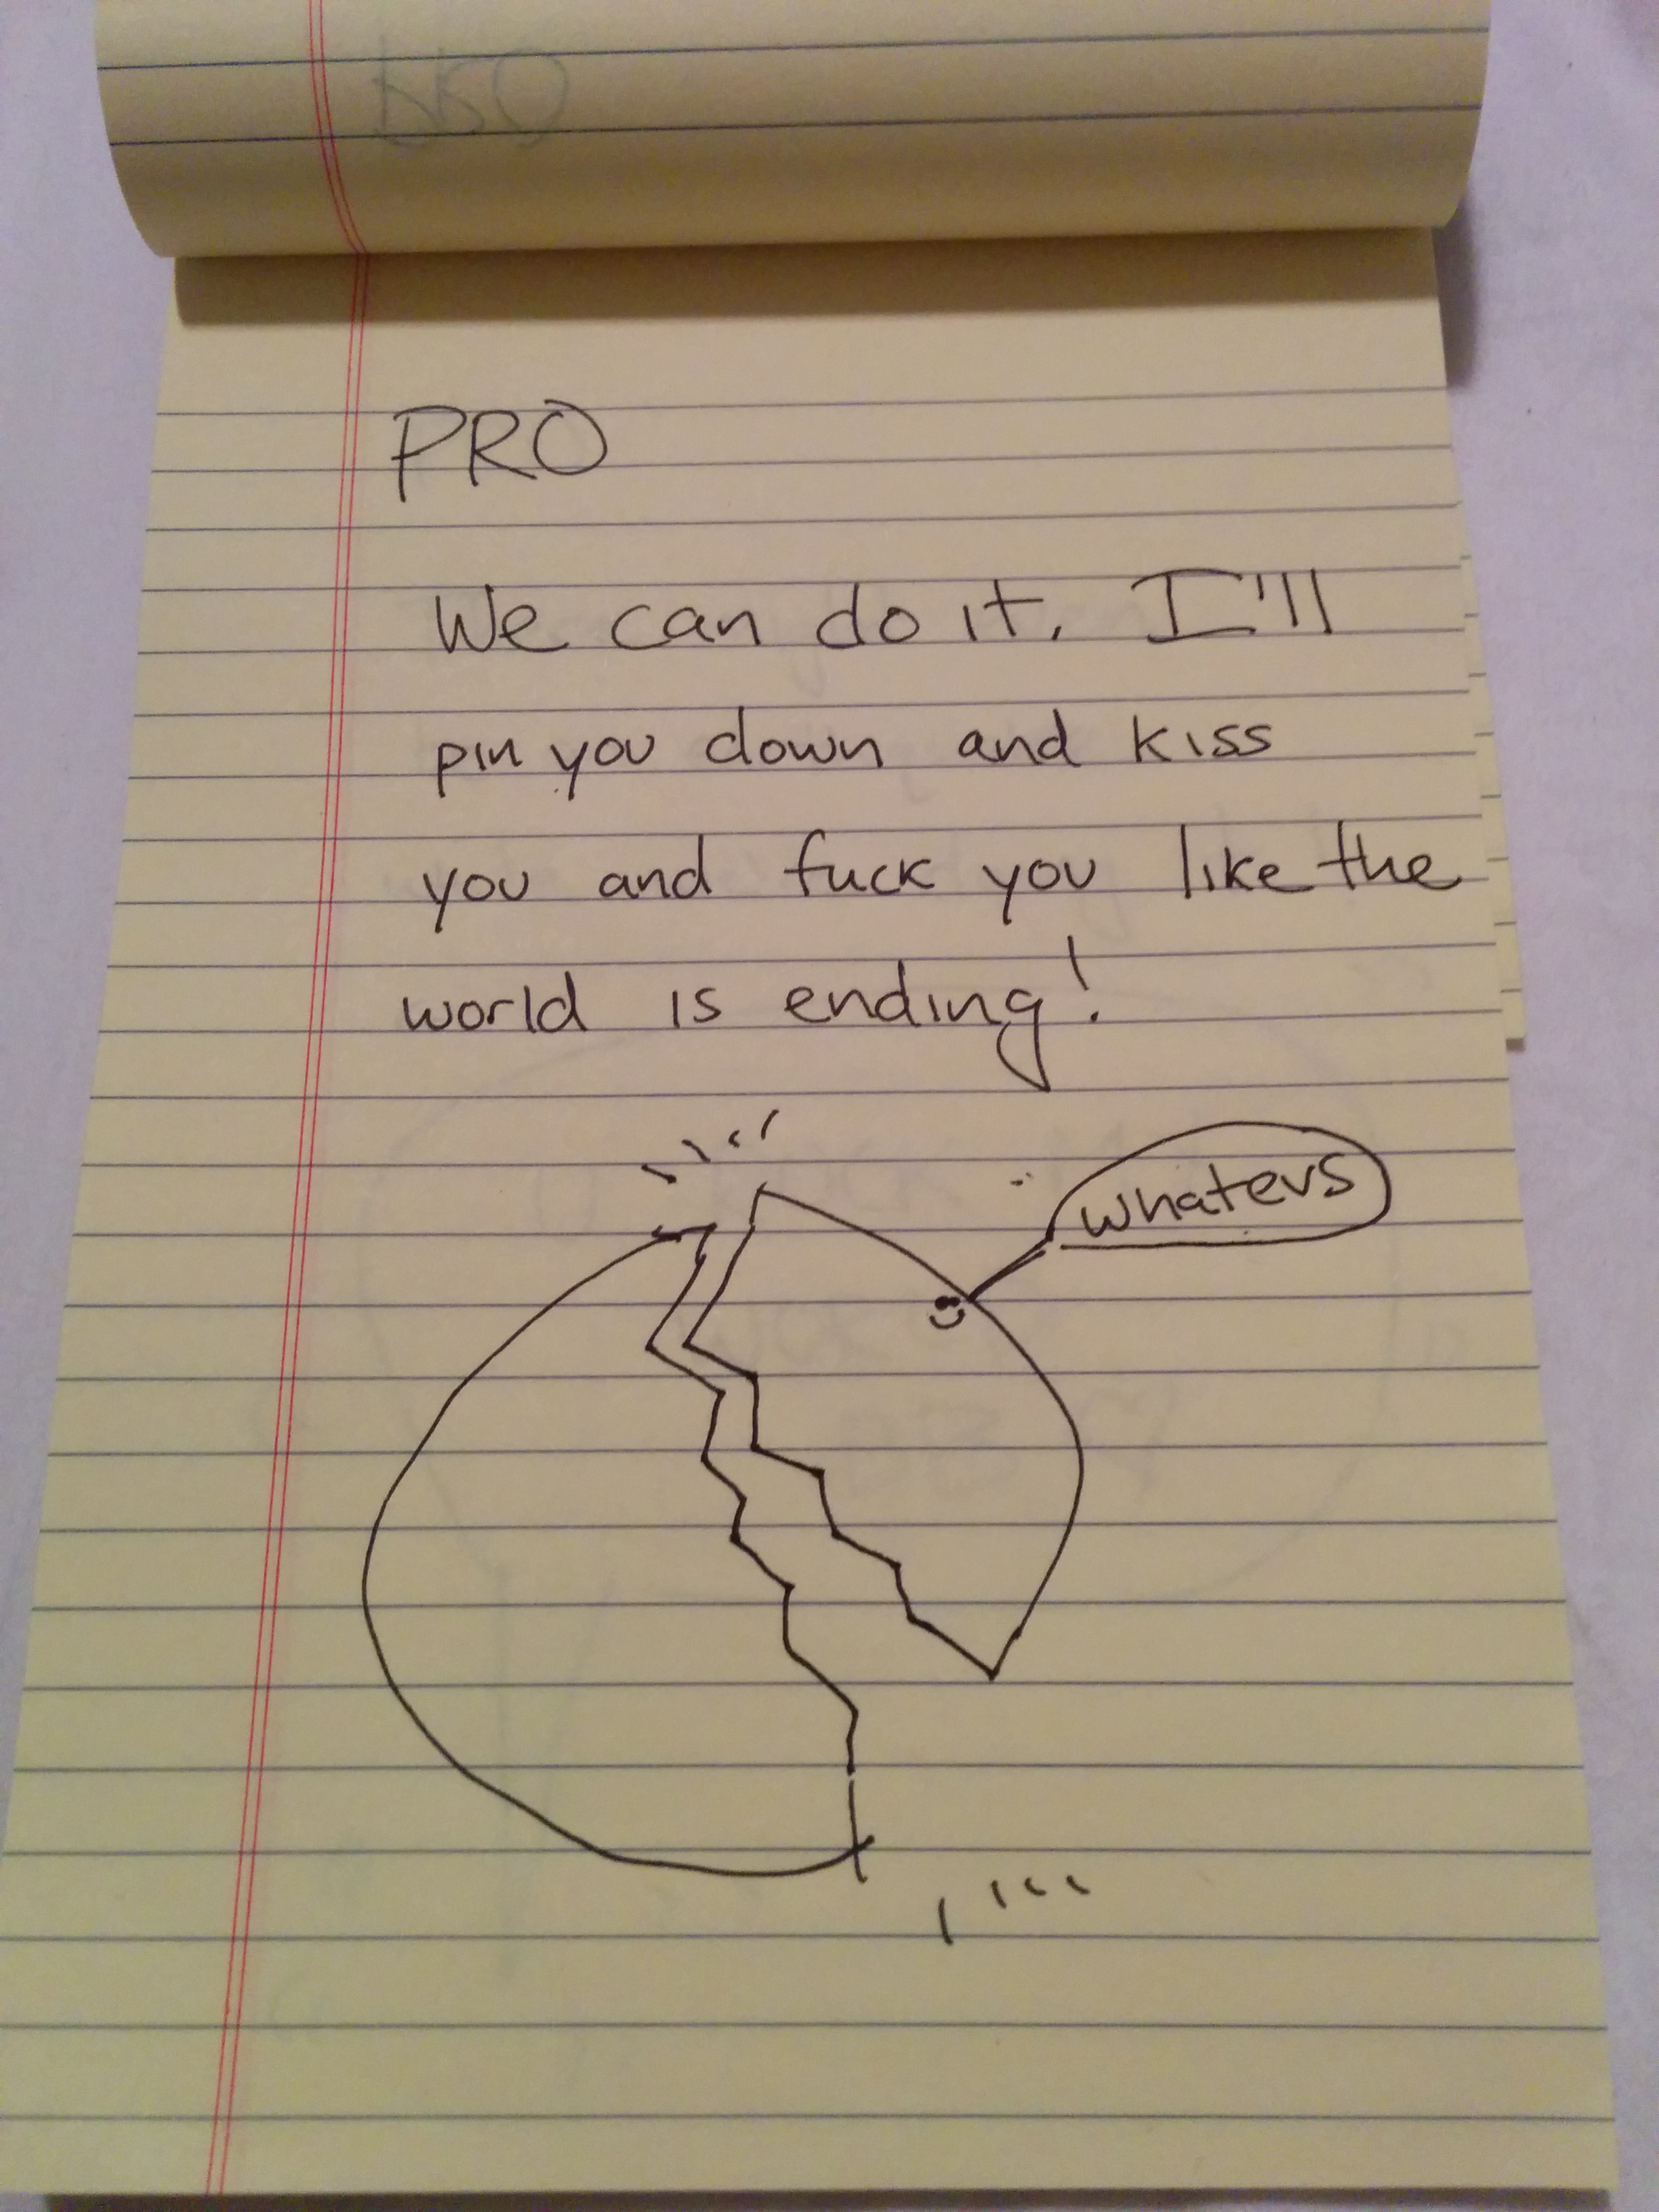 PRO
We can do it. I'll
pin you down and kiss
you and fuck you like the
world is ending!
whatevs